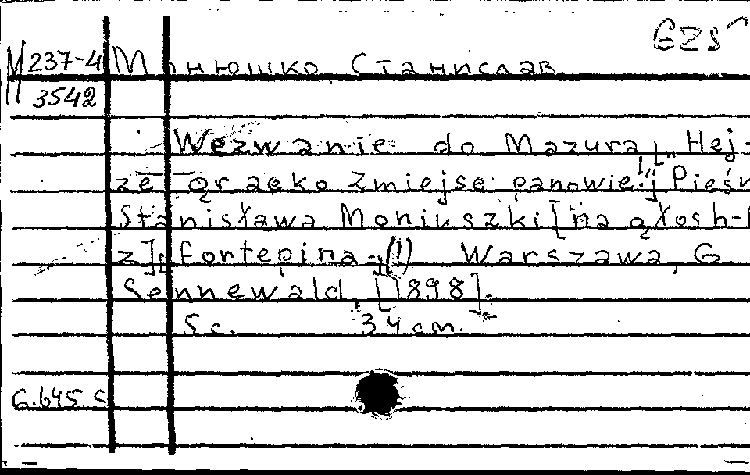 GZS
М 237-4 Монюшко, Станислав
3542
Wezwanie do Mazura „Hej-
że graeko żmiejse panowie:" Pieśń
Stanisława Moniuszki [na głosh-
z] fortepina (!) Warszawa, G.
Sennewald, [1898].
5 c. 34 cm.
G.645 S